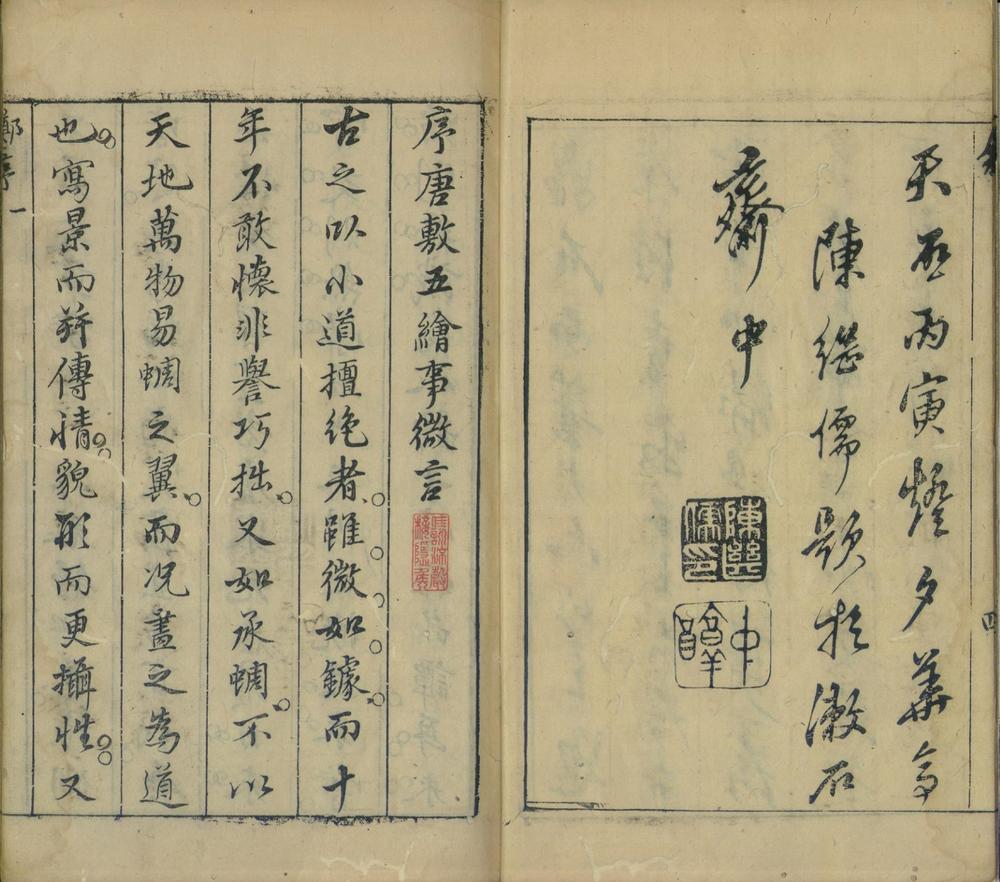 天啟丙寅燈夕華亭
陳繼儒題於漱石
齋中
陳繼
儒印
四
序唐敷五繪事微言
古之以小道擅絶者。雖。微、如。鐻。而十
年不敢懷非譽巧拙。又如承蜩。不以
天地萬物易蜩之翼。而况畫之為道
也。寫景而并傳情。貌形而更攝性。又
鄭序 一